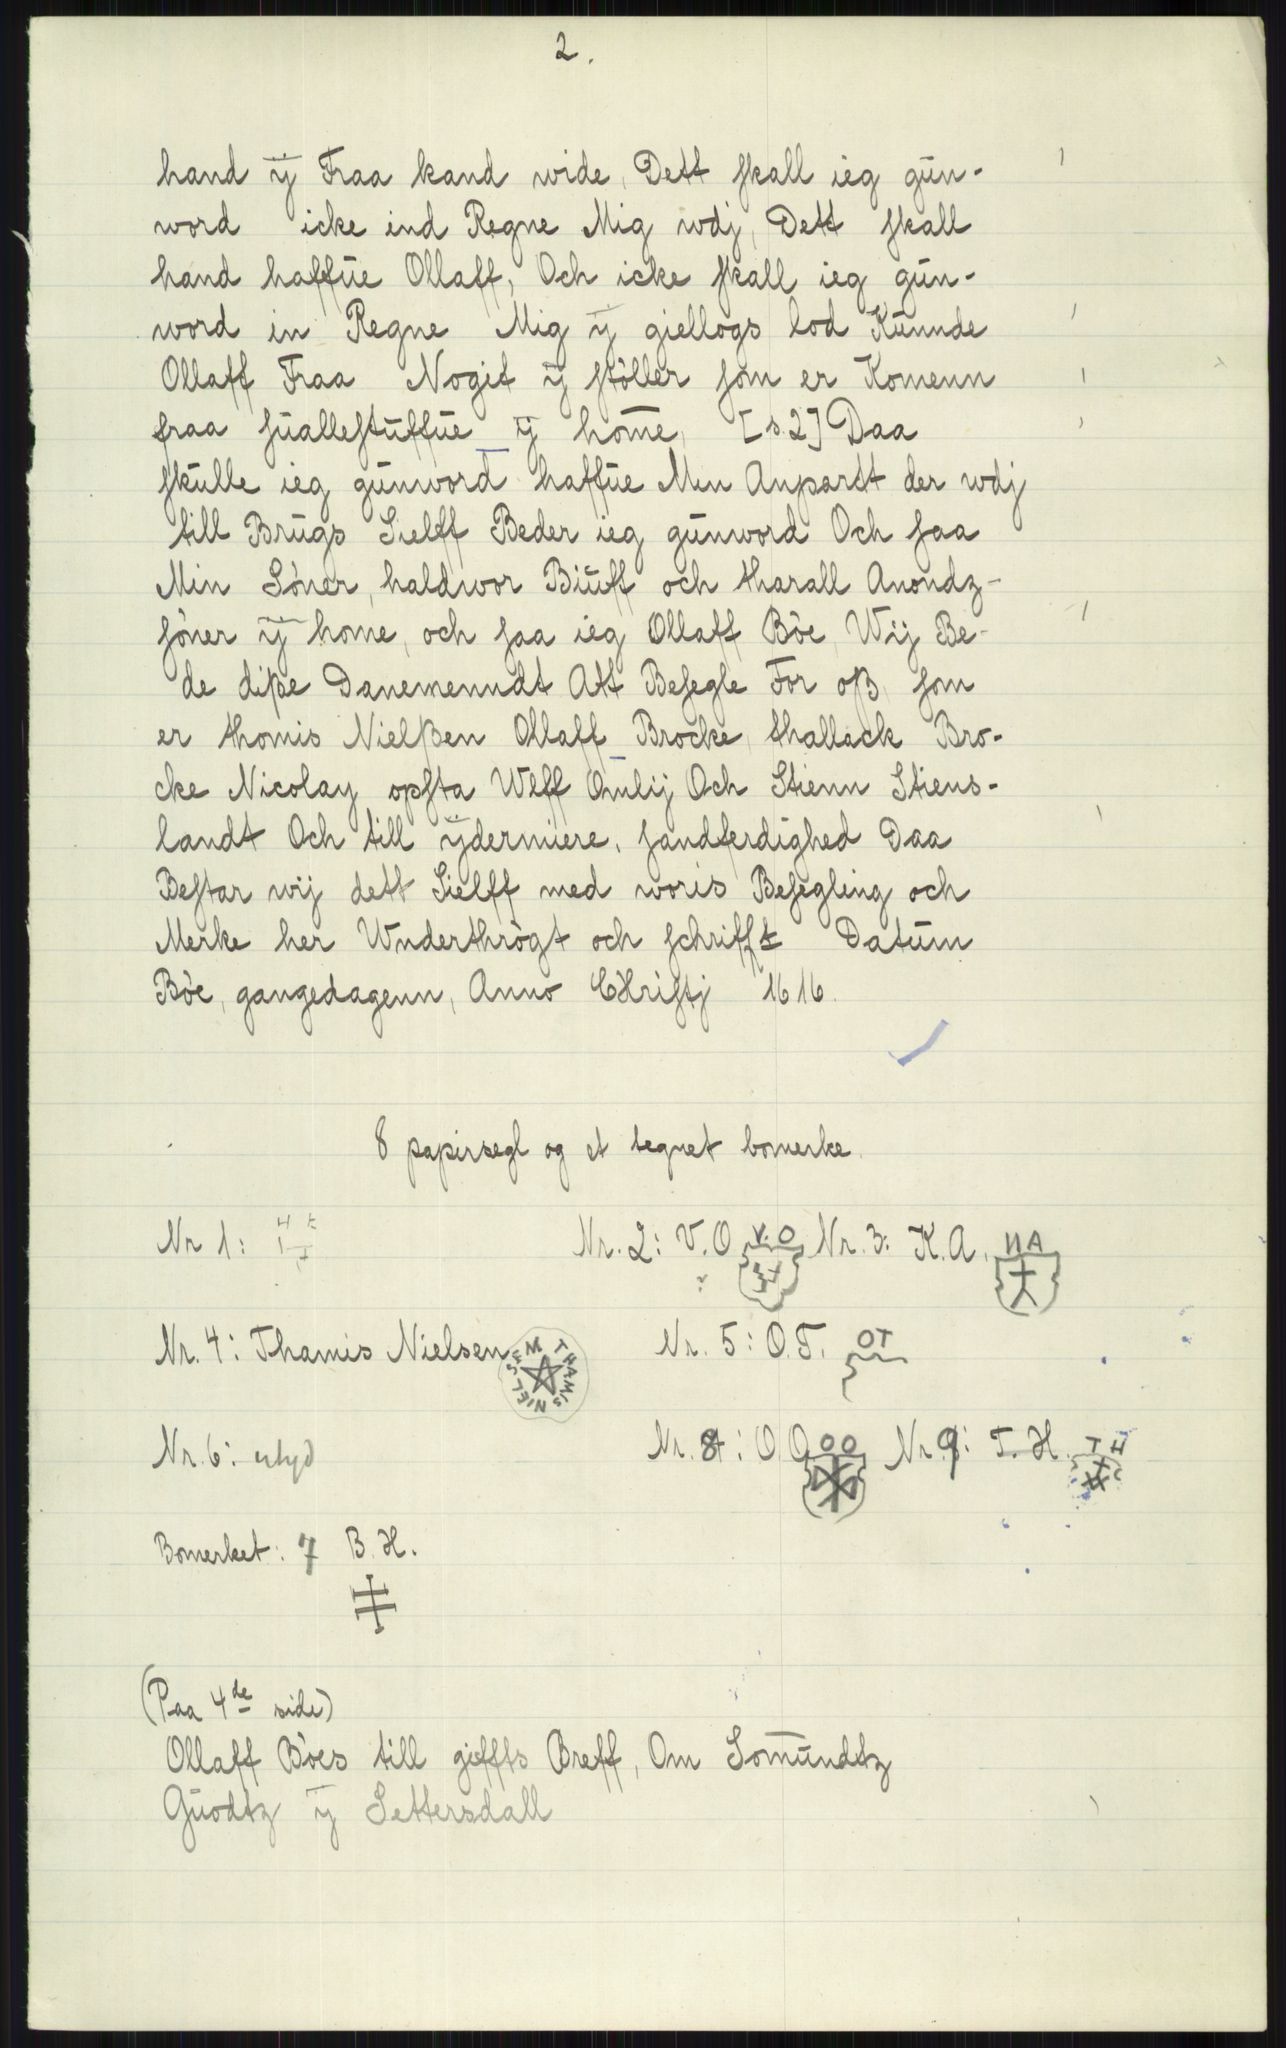 2.
hand ÿ Fraa kand wide, Dett skall ieg gün-
word icke ind Regne Mig wdj, Dett skall
hand haffüe Ollaff, Och icke skall ieg gün-
word in Regne Mig ÿ giellogs lod Künnde
Ollaff Fraa Nogit ÿ støller som er Komenn
fraa süallestüffüe ÿ home, [s.2] Daa
skülle ieg günword haffüe Min Anpardt der wdj
till Brügs Sielff Beder ieg günword Och saa
Min Söner, haldwor Biüff och tharall Anondz-
söner ÿ home, och saa ieg Ollaff Böe, Wij Be-
de diße Danemenndt Att Besegle For oß, som
er thomis Nielßen Ollaff Brocke, thallack Bro-
cke Nicolay opsta Wlff Omlij Och Stienn Stiens-
landt Och till ÿdermiere, sandferdighed Daa
Bestar wij dett Sielff med woris Besegling och
Merke her Wnderthrögt och schrifft Datüm
Böe, gangedagenn, Anno CHristj 1616.
8 papirsegl og et tegnet bomerke.
Nr 1: Nr. 2: V.O V.O Nr. 3. K.A. HA
Nr. 4: Thamis Nielsen THAMIS NIELSEM Nr. 5: O.T. OT
Nr. 6: utyd Nr. 8: O.O OO Nr. 9: T.H. TH
Bomerket: 7 B.H.
(Paa 4de side)
Ollaff Böes till giffts Breff, Om Somündtz
Guodtz ÿ Settersdall